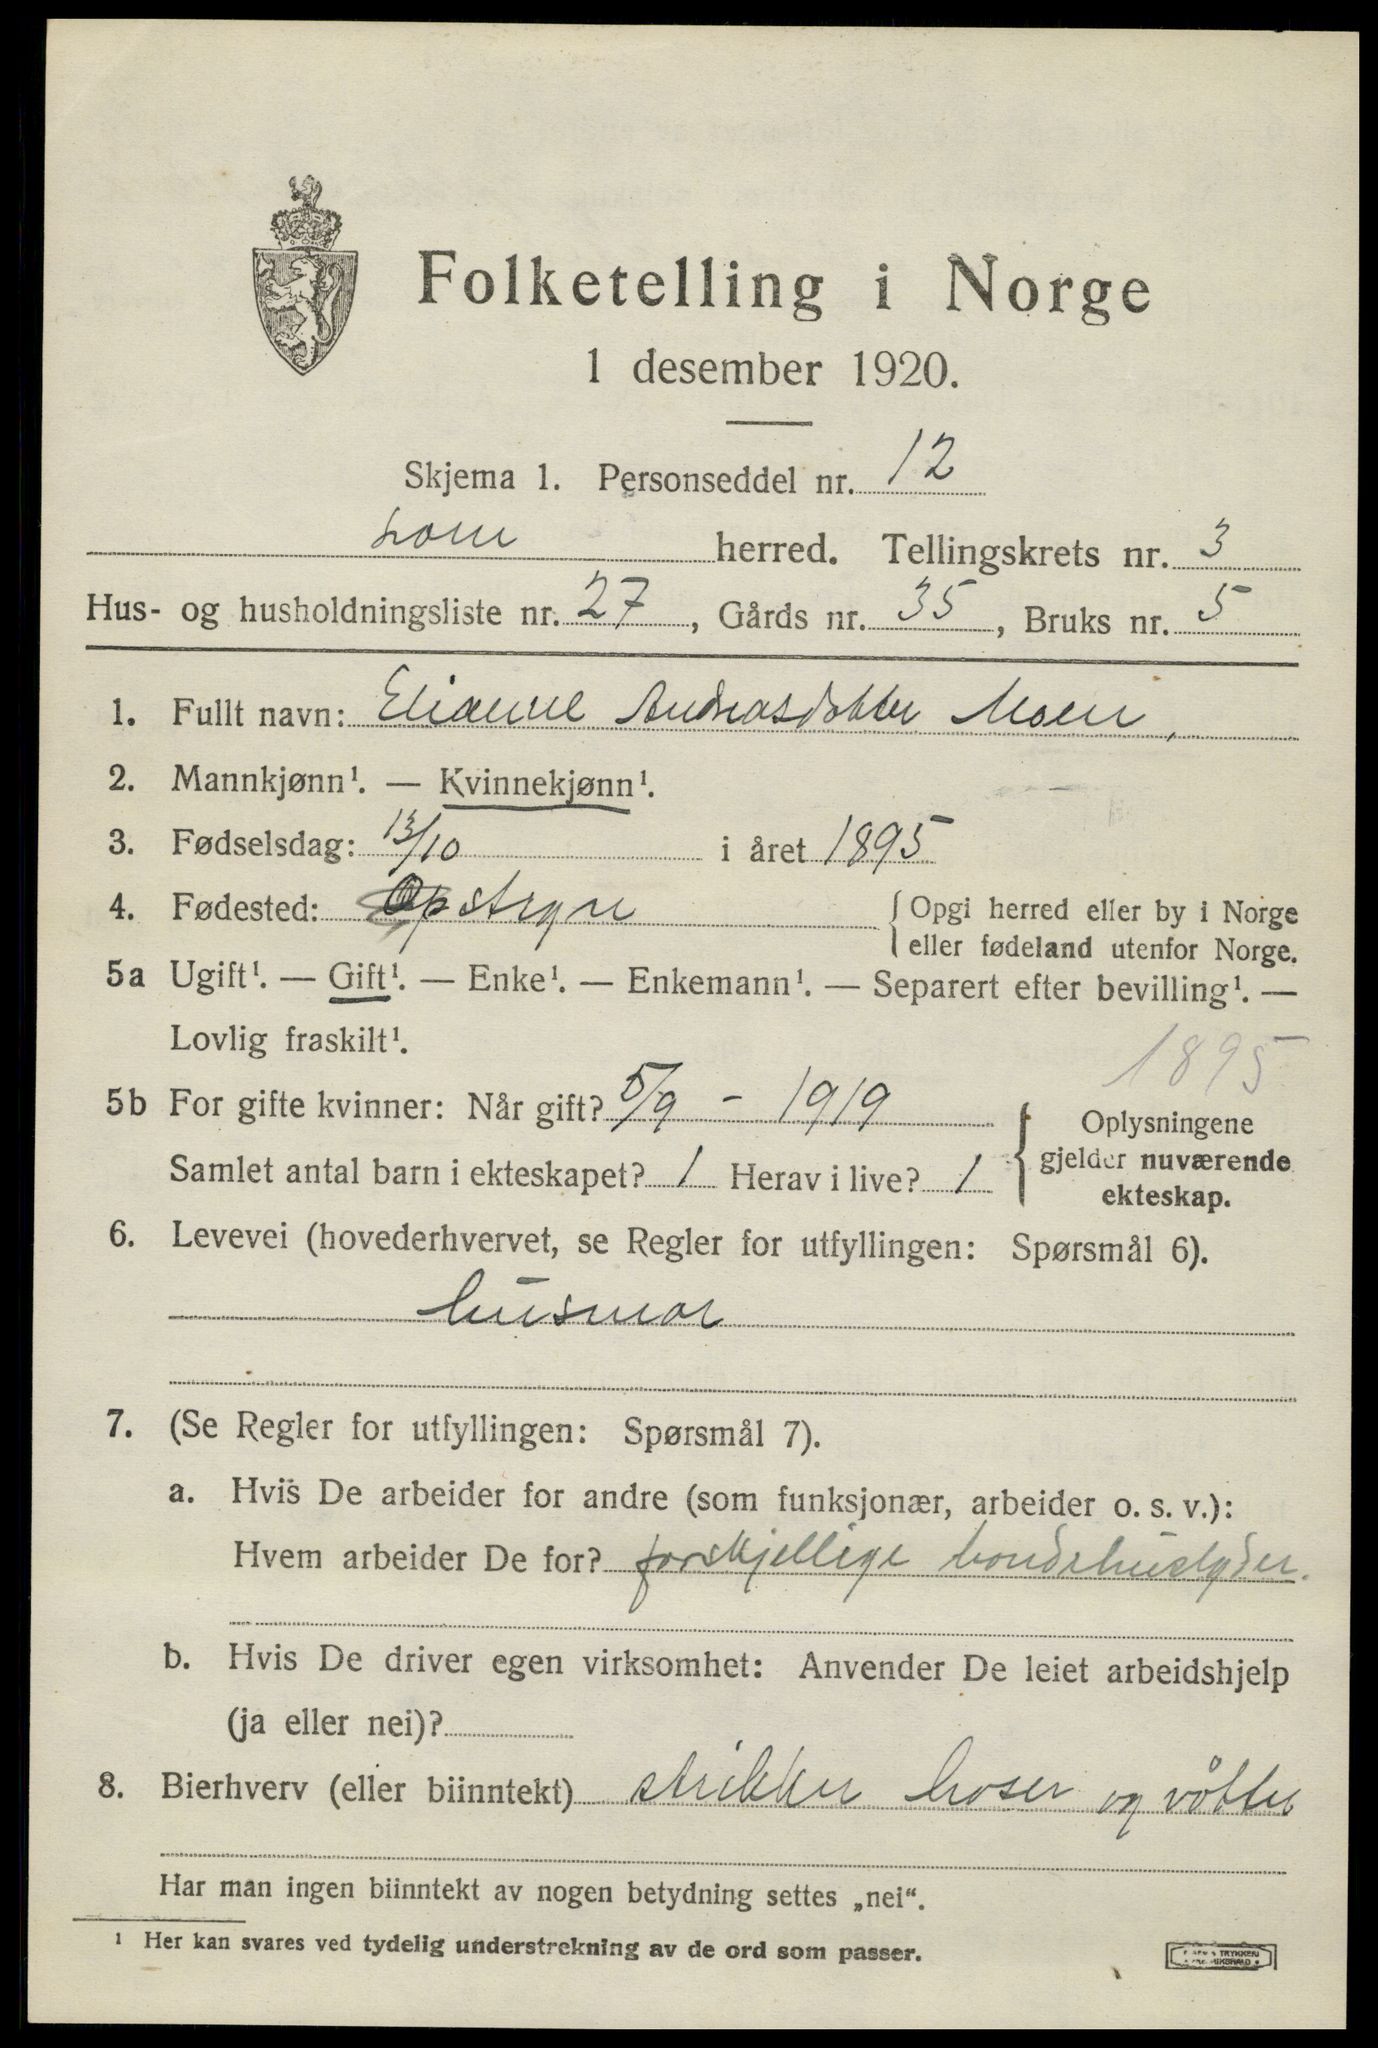 Folketelling i Norge
1 desember 1920.
Skjema 1. Personseddel nr. 12
Lom herred. Tellingskrets nr. 3
Hus- og husholdningsliste nr. 27, Gårds nr. 35, Bruks nr. 5
1. Fullt navn: Andreasdotter Moen,
2. Mannkjønn¹. — Kvinnekjønn¹.
3. Fødselsdag: 13/10 i året 1895
4. Fødested: Opstryn {Opgi herred eller by i Norge
eller fødeland utenfor Norge.
5a Ugift¹. — Gift¹. — Enke¹. — Enkemann¹. — Separert efter bevilling¹. —
Lovlig fraskilt¹.
1895
5b For gifte kvinner: Når gift? 5/9 - 1919 { Oplysningene
gjelder nuværende
ekteskap.
Samlet antal barn i ekteskapet? 1 Herav i live? 1
6. Levevei (hovederhvervet, se Regler for utfyllingen: Spørsmål 6).
husmor
7. (Se Regler for utfyllingen: Spørsmål 7).
a. Hvis De arbeider for andre (som funksjonær, arbeider o. s. v.):
Hvem arbeider De for? forskjellige bondehuslyder.
b. Hvis De driver egen virksomhet: Anvender De leiet arbeidshjelp
(ja eller nei)?
8. Bierhverv (eller biinntekt) strikker hoser og vötter
Har man ingen biinntekt av nogen betydning settes „nei“.
¹ Her kan svares ved tydelig understrekning av de ord som passer.